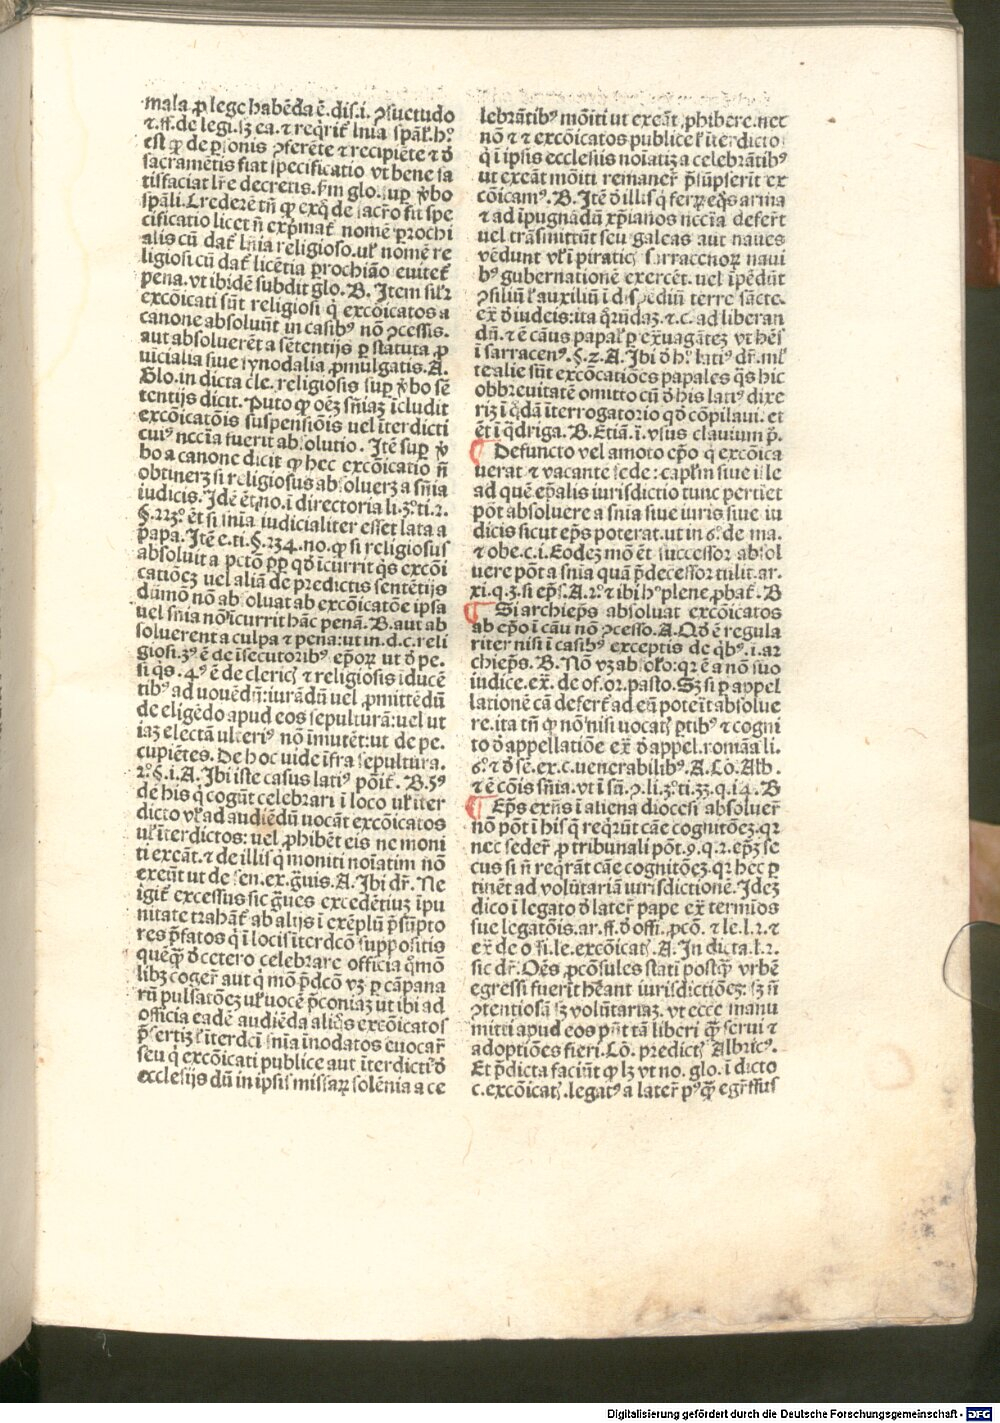 mala ꝓ lege habẽda ẽ. dis.i. ꝯsuetudo
⁊.ff. de legi. sꝫ ea. ⁊ reqrit͛ lnia spãl̃. hͦ.
est ꝙ de ꝑsonis ꝯferẽte ⁊ recipiẽte ⁊ ꝺ
sacramẽtis fiat specificatio vt bene sa
tisfaciat lr̃e decretis. fm glo. suꝑ v̾bo
spãli. Credere tñ ꝙ exq̃ de sacr̃o fit spe
cificatio licet ñ exp̃mat͛ nomẽ ꝑrochi
alis cũ dat͛ lnia religioso. ul̃ nomẽ re
ligiosi cũ dat͛ licẽtia ꝑrochião euitet͛
pena. vt ibidẽ subdit glo. B. Item sil̃r
excõicati sũt religiosi q̇ excõicatos a
canone absoluũt in casibꝰ nõ ꝯcessis.
aut absoluerẽt a sẽtentijs ꝑ statuta ꝓ
uicialia siue synodalia ꝓmulgatis. A.
Glo. in dicta cle. religiosis suꝑ v̾bo sẽ
tentijs dicit. Puto ꝙ oẽꝫ sñiaꝫ ĩcludit
excõicatõis suspensiõis uel ĩterdicti
cuiꝰ nccĩa fuerit absolutio. Itẽ suꝑ v̾
bo a canone dicit ꝙ hec excõicatio ñ
obtineꝛꝫ si religiosus absolueꝛꝫ a sñia
iudicis. Idẽ ẽt no. ĩ directoria li.3ͦ.ti.2.
§.223.ͦ ẽt si snia iudicialiter esset lata a
papa. Itẽ e. ti. §.234. no. ꝙ si religiosus
absoluit a pctõ ꝓꝑ qḋ ĩcurrit q̇s excõi
catiõeꝫ vel aliã de predictis sentẽtijs
dũmõ nõ absoluat ab excõicatõe ipsa
uel sñia nõ ĩcurrit hãc penã. B. aut ab
soluerent a culpa ⁊ pena: ut in .d.c. reli
giosi. 3ꝰ ẽ de ĩsecutoribꝰ ep̃oꝝ ut ꝺ pe.
si q̇s. 4ꝰ ẽ de clericꝭ ⁊ religiosis ĩducẽ
tibꝰ ad vouẽdũ: iurãdũ uel ꝓmittẽdũ
de eligẽdo apud eos sepulturã: uel ut
iaꝫ electã ulteriꝰ nõ ĩmutẽt: ut de pe.
cupiẽtes. De hoc uide ĩfra sepultura.
2.ͦ §.i. A. Ibi iste casus latiꝰ põit͛. B. 5ꝰ
de his q̇ cogũt celebrari ĩ loco ul̃ ĩter
dicto vl̃ ad audiẽdũ uocãt excõicatos
ul̃ ĩterdictos: uel ꝓhibẽt eis ne moni
ti exeãt. ⁊ de illis q̇ moniti noĩatim nõ
exeũt ut de sen. ex. g̃uis. A. Ibi dr̃. Ne
igit͛ excessus sic g̃ues excedẽtiuꝫ ĩpu
nitate trahãt͛ ab alijs ĩ exẽplũ p̃sũpto
res p̃fatos q̇ ĩ locis ĩterdcõ suppositis
quẽqꝫ ꝺcetero celebrare officia q̇mõ
libꝫ coger̃ aut q̇ mõ p̃dcõ vꝫ ꝑ cãpana
rũ pulsatõeꝫ ul̃ uocẽ p̃coniaꝫ ut ibi ad
officia eadẽ audiẽda aliq̇s excõicatos
p̃sertiꝫ l̃ ĩterdcĩ snia ĩnodatos euocar̃
seu q̇ excõicati publice aut ĩterdicti ꝺ
ecclesijs dũ in ipsis missaꝝ solẽnia a ce
lebrãtibꝰ mõiti ut exeãt ꝓhibere. nec
nõ ⁊ ⁊ excõicatos publice l̃ ĩterdicto
q̇ ĩ ipsis ecclesiis noĩatiꝫ a celebrãtibꝰ
ut exeãt mõiti remaner̃ p̃sũpserit ex
cõicamꝰ. B. Itẽ ꝺ illis q̇ ferꝝ eq̇s arma
⁊ ad ĩpugnãdũ xp̃ianos nccĩa defert͛
uel trãsmittũt seu galeas aut naues
vẽdunt vl̃ ĩ piraticꝭ sarracenoꝝ naui
bꝰ gubernationẽ exercẽt. uel ĩpẽdũt
ꝯsiliũ l̃ auxiliũ ĩ dispẽdiũ terre sãcte.
ex̃ ꝺ iudeis: ita q̃rũdaꝫ. ⁊.c. ad liberan
dũ. ⁊ ẽ cãus papal̃ ꝑ exuagãteꝫ vt hẽs
ĩ sarracenꝰ. §.2. A. Ibi ꝺ hͦ latiꝰ dr̃. ml̃
te alie sũt excõcatiões papales q̃s hic
obbreuitatẽ omitto cũ ꝺ his latiꝰ dixe
riꝫ ĩ q̇dã ĩterrogatorio qḋ cõpilaui. et
ẽt ĩ q̃driga. B. Etiã. ĩ. vsus clauium p̃.
Defuncto vel amoto ep̃o q̇ excõica
uerat ⁊ vacante sede: capl̃m siue ille
ad quẽ ep̃alis iurisdictio tunc pertiet
põt absoluere a snia siue iuris siue iu
dicis sicut ep̃s poterat. ut in 6.ͦ de ma.
⁊ obe. c.i. Eodeꝫ mõ ẽt successor absol
uere põt a snia quã p̃decessor tulit. ar.
xi. q.3. si ep̃s. A. 2.ͦ ⁊ ibi hͦ plene ꝓbat͛. B
Si archiep̃s absoluat excõicatos
ab ep̃o ĩ cãu nõ ꝯcesso. A. Qḋ ẽ regula
riter nisi ĩ casibꝰ exceptis de q̇bꝰ. ĩ. ar
chiep̃s. B. Nõ vꝫ absolꝰo: qꝛ ẽ a nõ suo
iudice. ex̃. de of. or. pasto. Sꝫ si ꝑ appel
lationẽ cã defert͛ ad eũ poteĩt absolue
re. ita tñ ꝙ nõ nisi uocatꝭ ꝑtibꝰ ⁊ cogni
to ꝺ appellatiõe ex̃ ꝺ appel. romãa li.
6.ͦ ⁊ ꝺ sẽ. ex. c. uenerabilibꝰ. A. Cõ. Alb.
⁊ ẽ cõis sñia. vt ĩ sũ. 2. li.3.ͦ ti.33. q.i4. B
Ep̃s exñs ĩ aliena diocesi absoluer̃
nõ põt ĩ his q̇ reqrũt cãe cognitõeꝫ. qꝛ
nec seder̃ ꝓ tribunali põt. 9. q.2. ep̃ꝫ se
cus si ñ reqrãt cãe cognitõeꝫ. qꝛ hec ꝑ
tinẽt ad volũtariã iurisdictionẽ. Ideꝫ
dico ĩ legato ꝺ later̃ pape ex̃ termĩos
sue legatõis. ar. ff. ꝺ offi. ꝓcõ. ⁊ le. l.2. ⁊
ex̃ de offi. le. excõicatꝭ. A. In dicta. l.2.
sic dr̃. Oẽs ꝓcõsules stati postqꝫ vrbẽ
egressi fuerĩt hẽant iurisdictiõeꝫ: sꝫ ñ
ꝯtentiosã sꝫ volũtariaꝫ. vt ecce manu
mitti apud eos pñt tã liberi qꝫ serui ⁊
adoptiões fieri. Cõ. predictꝭ Albricꝰ.
Et p̃dicta faciũt ꝙ lꝫ vt no. glo. ĩ dicto
c. excõicatꝭ. legatꝰ a later̃ pꝰqꝫ egressus
Digitalisierung gefördert durch die Deutsche Forschungsgemeinschaft - DFG